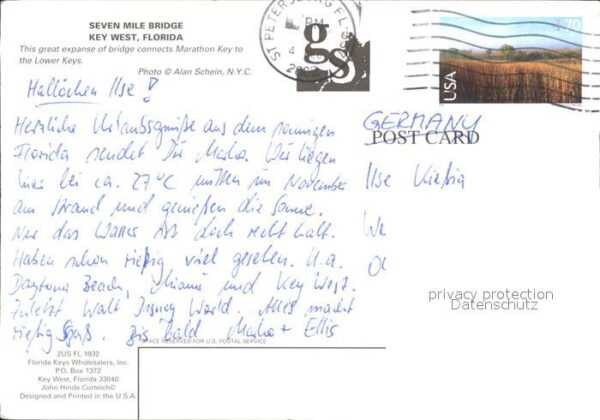 SEVEN MILE BRIDGE
KEY WEST, FLORIDA
This great expanse of bridge connects Marathon Key to
the Lower Keys.
Photo © Alan Schein, N.Y.C.
ST PETERSBURG FL
PM
gs
70
USA
Hallöchen Ilse!
Herzliche Urlaubsgrüße aus dem sonnigen
Florida sendet Dir Wir liegen
hier bei ca. 27°C mitten im November
am Strand und genießen die Sonne.
Nur das Wasser ist doch recht kalt.
Haben schon rießig viel gesehen. U.a.
Daytona Beach, Miami und Key West.
Zuletzt Walt Disney World. Alles macht
rießig Spaß. Bis bald + Ellis
GERMANY
POST CARD
Ilse
privacy protection
Datenschutz
SPACE RESERVED FOR U.S. POSTAL SERVICE
2US FL 1932
Florida Keys Wholesalers, Inc.
P.O. Box 1372
Key West, Florida 33040
John Hinde Curteich©
Designed and Printed in the U.S.A.